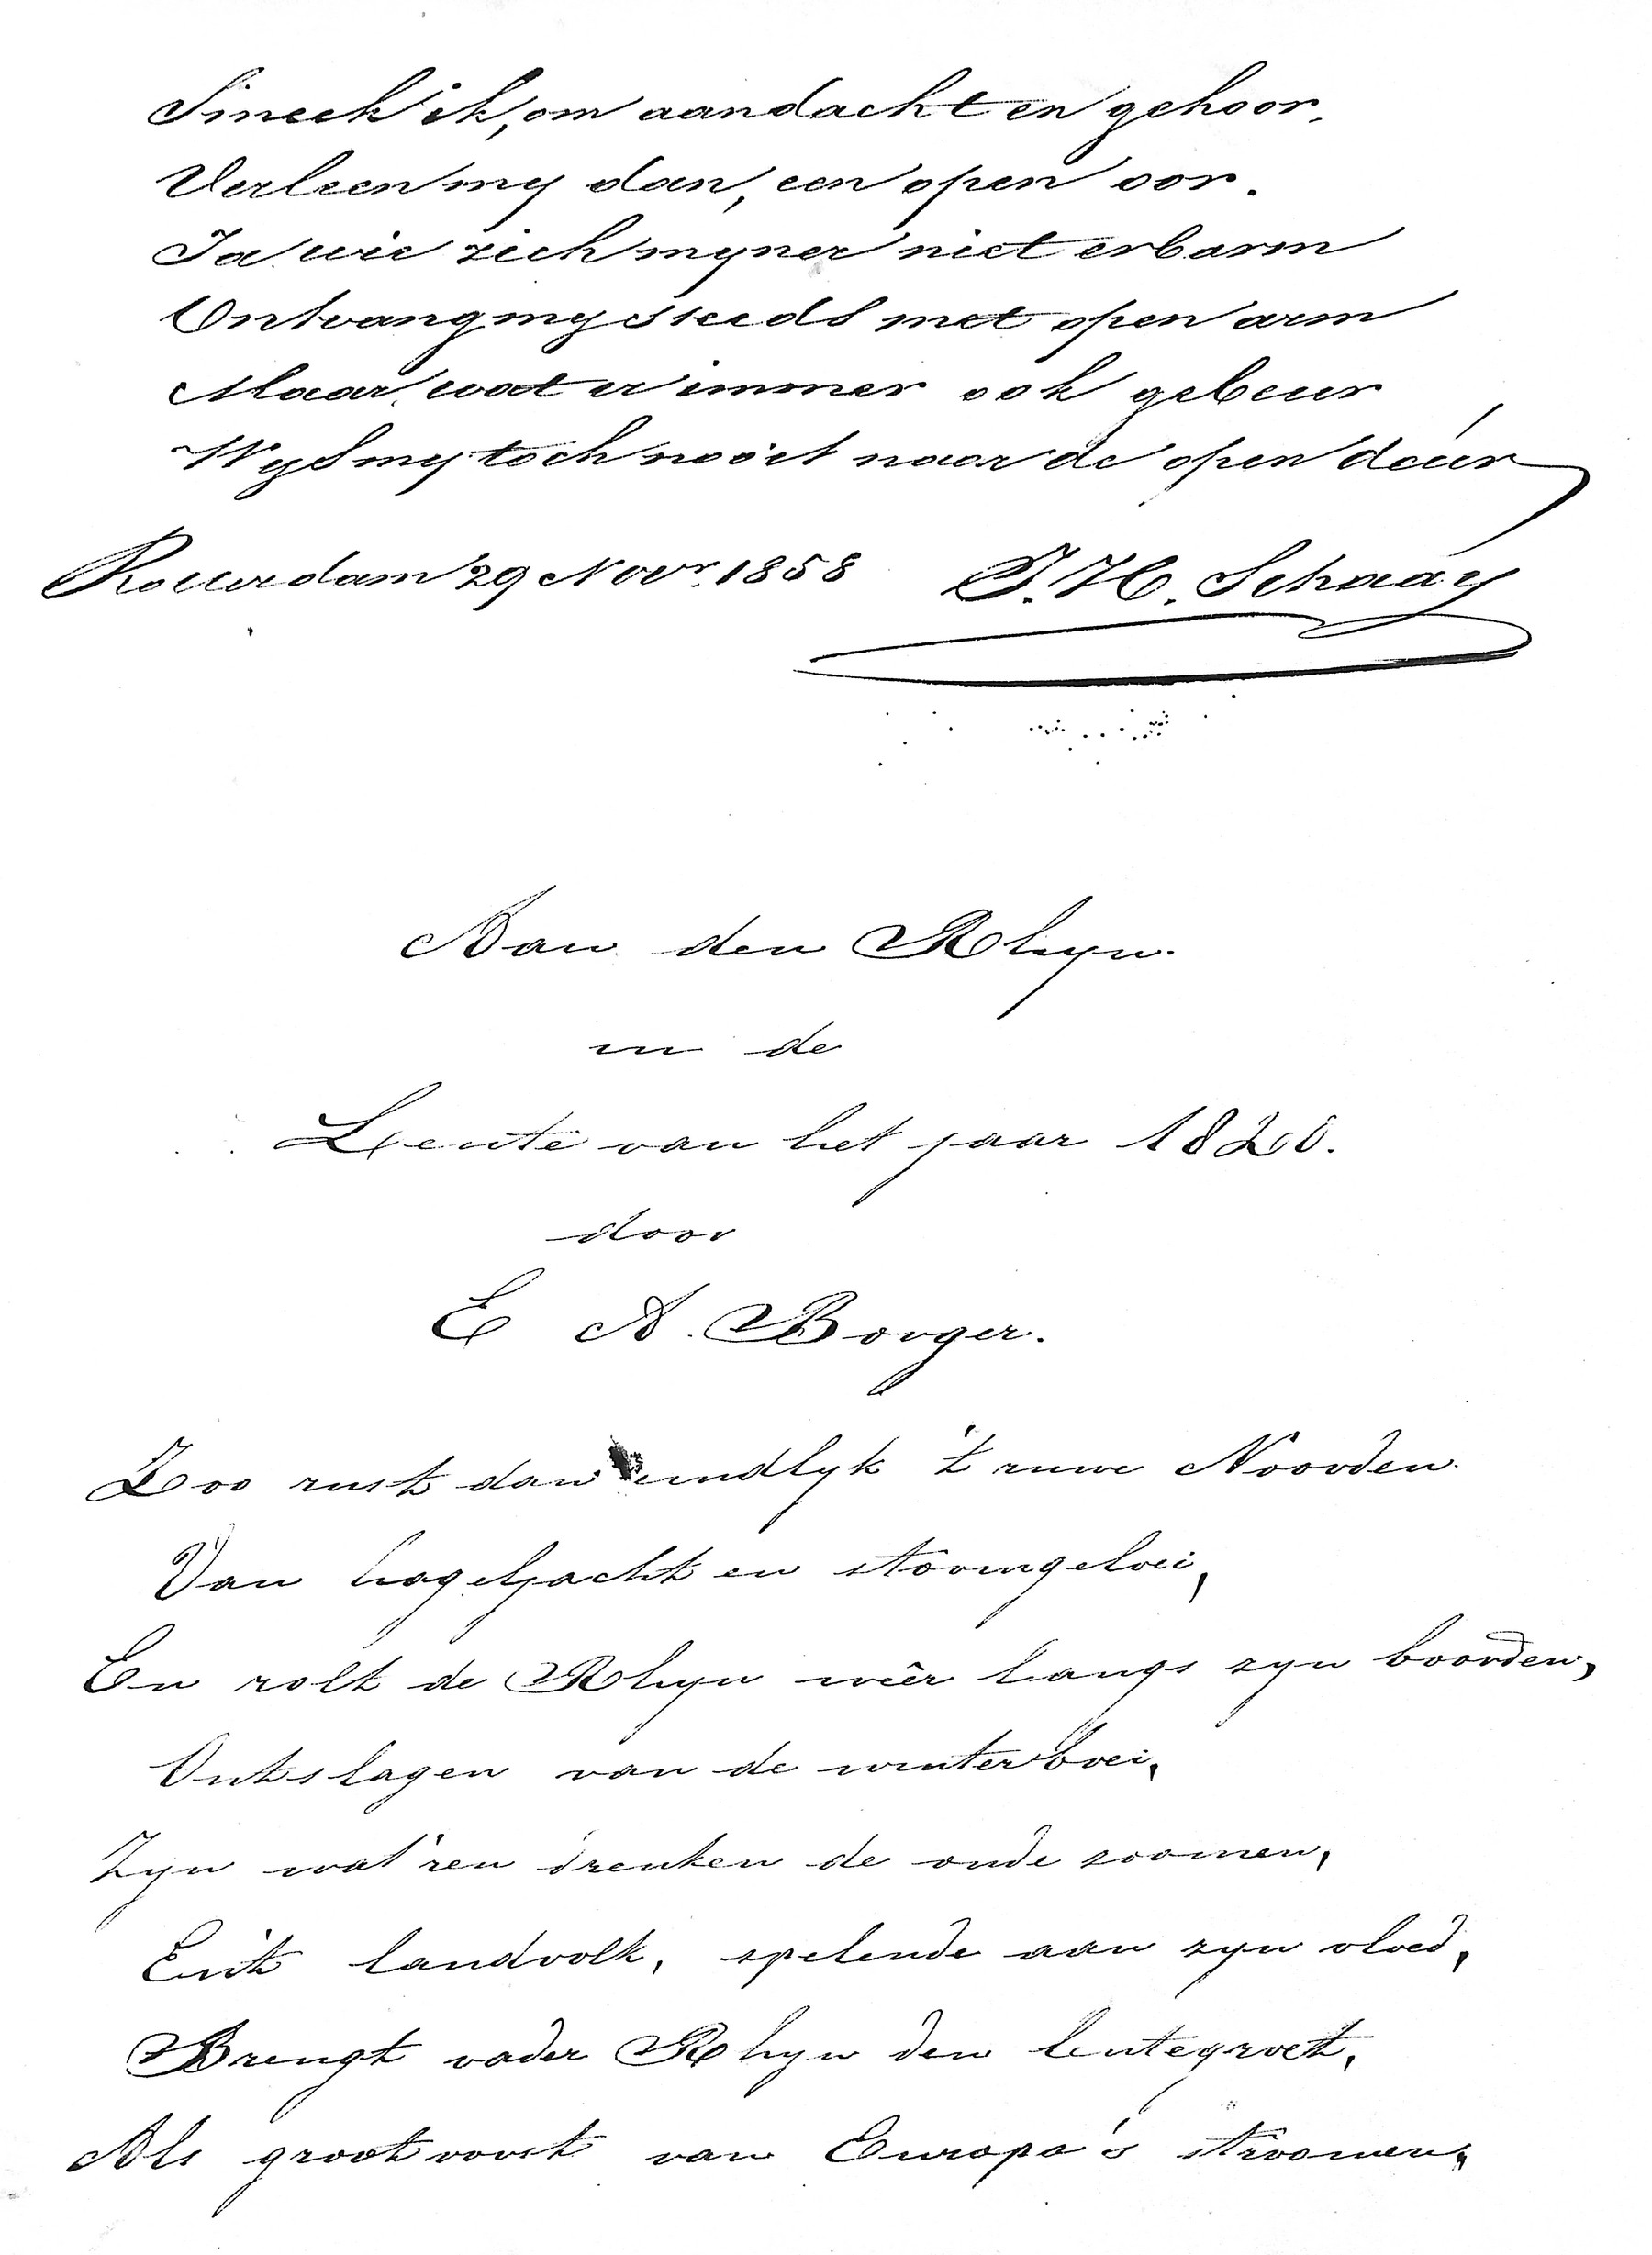 Smeek ik, om aandacht en gehoor.
Verleen my dan, een open oor.
Ja wie zich myner niet erbarm
Ontvang my steeds met open arm
Maar, wat er immer ook gebeur
Wys my toch nooit naar de open deur
Rotterdam 29 Novr. 1858 J. H. Schaay
Aan den Rhyn.
in de
Lente van het jaar 1820.
door
E A. Borger.
Zoo rust dan eindlyk 't ruwe Noorden.
Van hageljacht en stormgeloei,
En rolt de Rhyn wêr langs zyn boorden,
Ontslagen van de winterboei.
Zyn wat'ren drenken de oude zoomen,
En 't landvolk, spelende aan zyn vloed,
Brengt vader Rhyn den lentegroet,
Als grootvorst van Europa's stroomen.